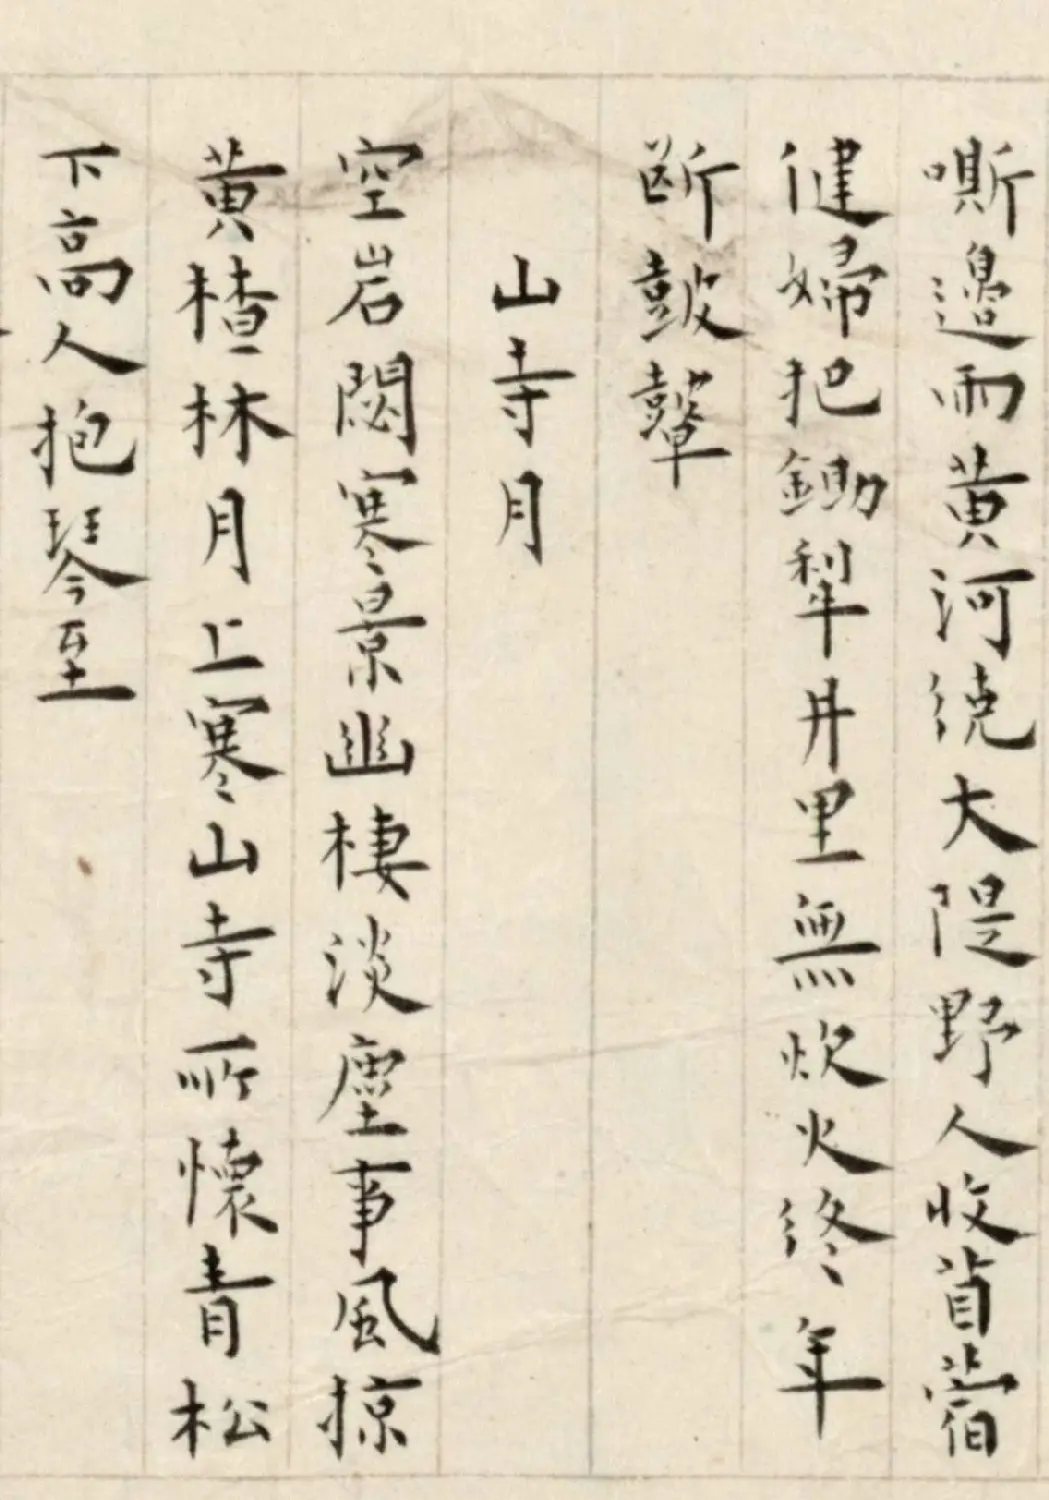 嘶邊雨黄河繞大隄野人收苜蓿
健婦把鋤犁井里無炊火終年
斷鼓鼙
山寺月
空岩閟寒景幽棲淡塵事風掠
黄楂林月上寒山寺所懷青松
下高人抱琴至